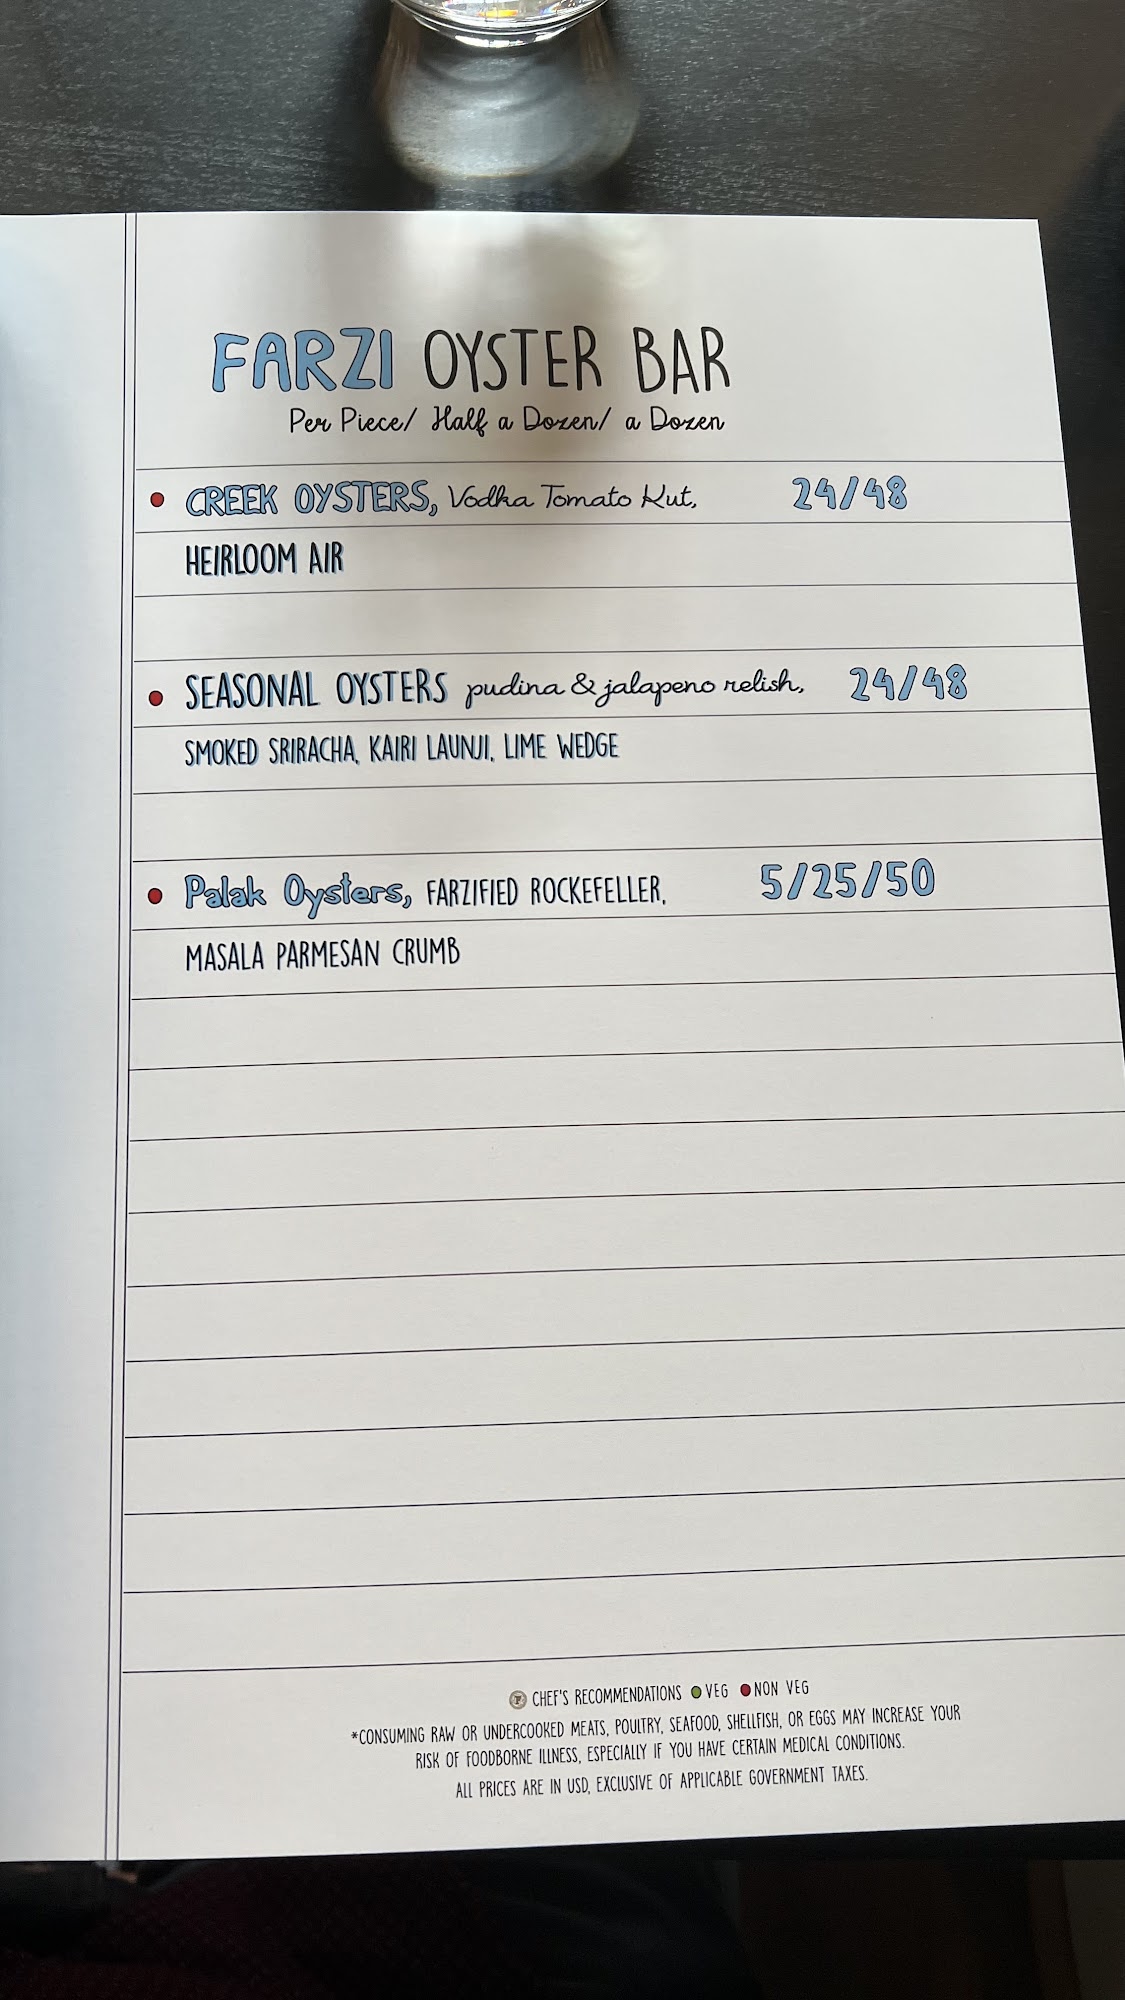 FARZI OYSTER BAR
Per Piece/ Half a Dozen/ a Dozen
CREEK OYSTERS, Vodka Tomato Kut, 24/48
HEIRLOOM AIR
SEASONAL OYSTERS pudina & jalapeno relish, 24/48
SMOKED SRIRACHA, KAIRI LAUNJI, LIME WEDGE
Palak Oysters, FARZIFIED ROCKEFELLER, 5/25/50
MASALA PARMESAN CRUMB
CHEF'S RECOMMENDATIONS VEG NON VEG
*CONSUMING RAW OR UNDERCOOKED MEATS, POULTRY, SEAFOOD, SHELLFISH, OR EGGS MAY INCREASE YOUR
RISK OF FOODBORNE ILLNESS, ESPECIALLY IF YOU HAVE CERTAIN MEDICAL CONDITIONS.
ALL PRICES ARE IN USD, EXCLUSIVE OF APPLICABLE GOVERNMENT TAXES.